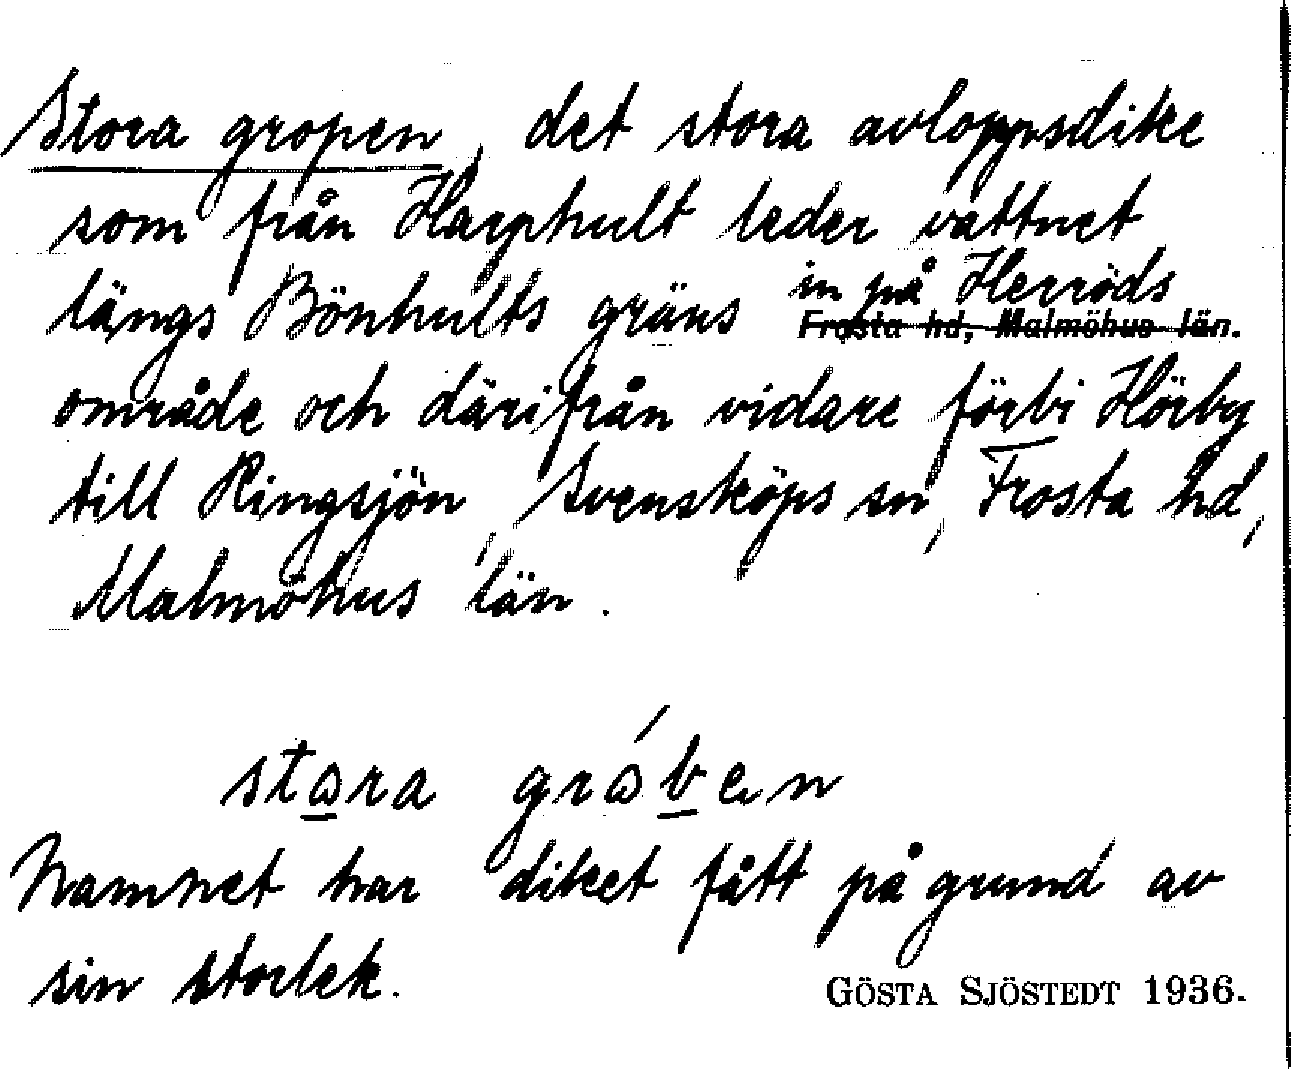 Stora gropen, det stora avloppsdike
som från Harphult leder vattnet
längs Bönhults gräns in på Herröds
Frosta hd, Malmöhus län.
område och därifrån vidare förbi Hörby
till Ringsjön, Svensköps sn, Frosta hd,
Malmöhus län.
stɷra grɷ́ben
Namnet har diket fått på grund av
sin storlek.
GÖSTA SJÖSTEDT 1936.